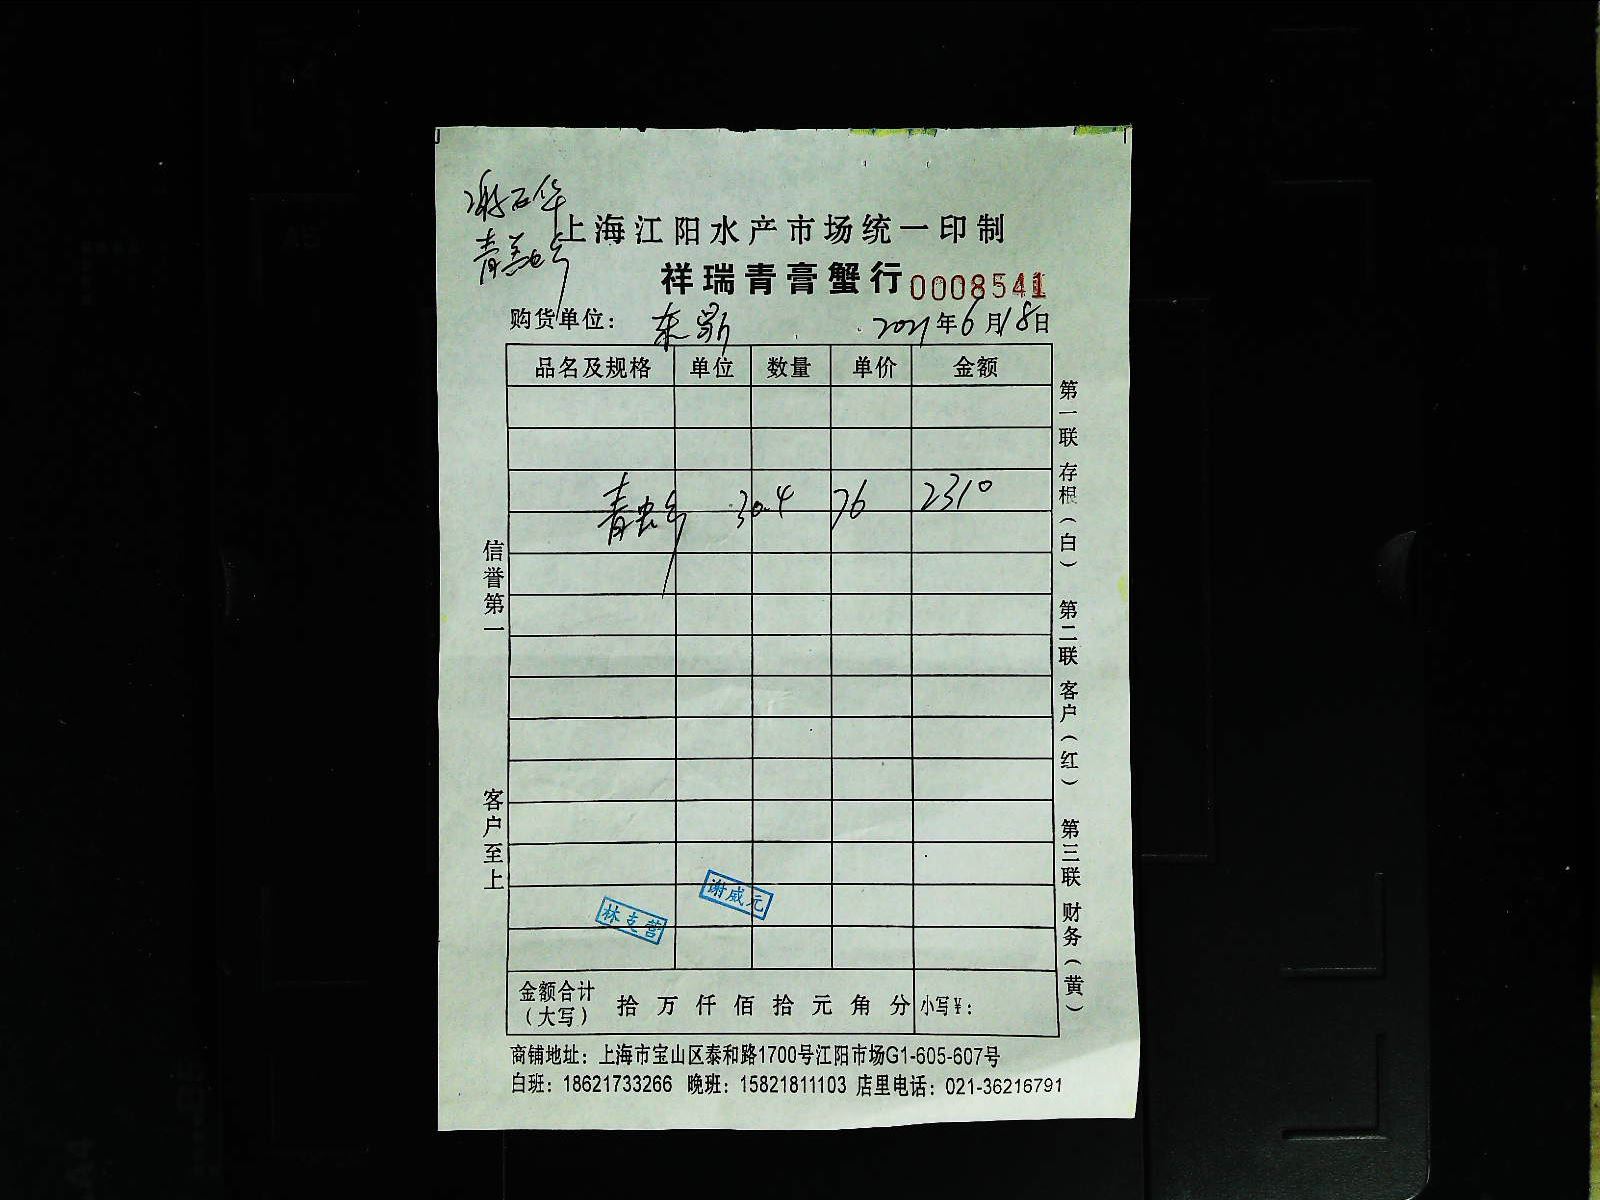 上海江阳水产市场统一印制
祥瑞青膏蟹行 0008541
购货单位： 2021年6月18日
品名及规格 单位 数量 单价 金额
青 30.4 76 2310
信誉第一
客户至上
第一联 存根（白） 第二联 客户（红） 第三联 财务（黄）
谢威元
林支营
金额合计（大写） 拾 万 仟 佰 拾 元 角 分 小写￥：
商铺地址：上海市宝山区泰和路1700号江阳市场G1-605-607号
白班：18621733266 晚班：15821811103 店里电话：021-36216791